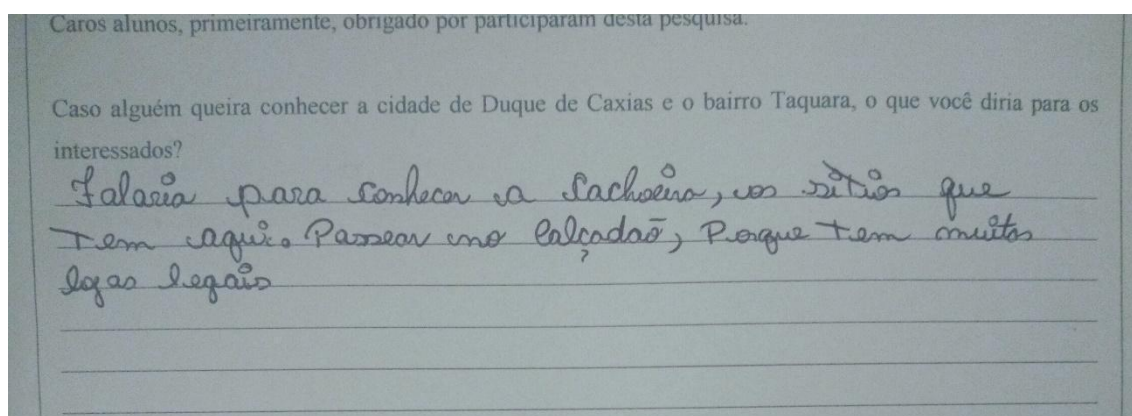 Caros alunos, primeiramente, obrigado por participaram desta pesquisa.
Caso alguém queira conhecer a cidade de Duque de Caxias e o bairro Taquara, o que você diria para os
interessados?
Falaria para conhecer a Cachoeira, os sítios que
tem aqui. Passear no calçadaõ, Porque tem muitas
logas legais